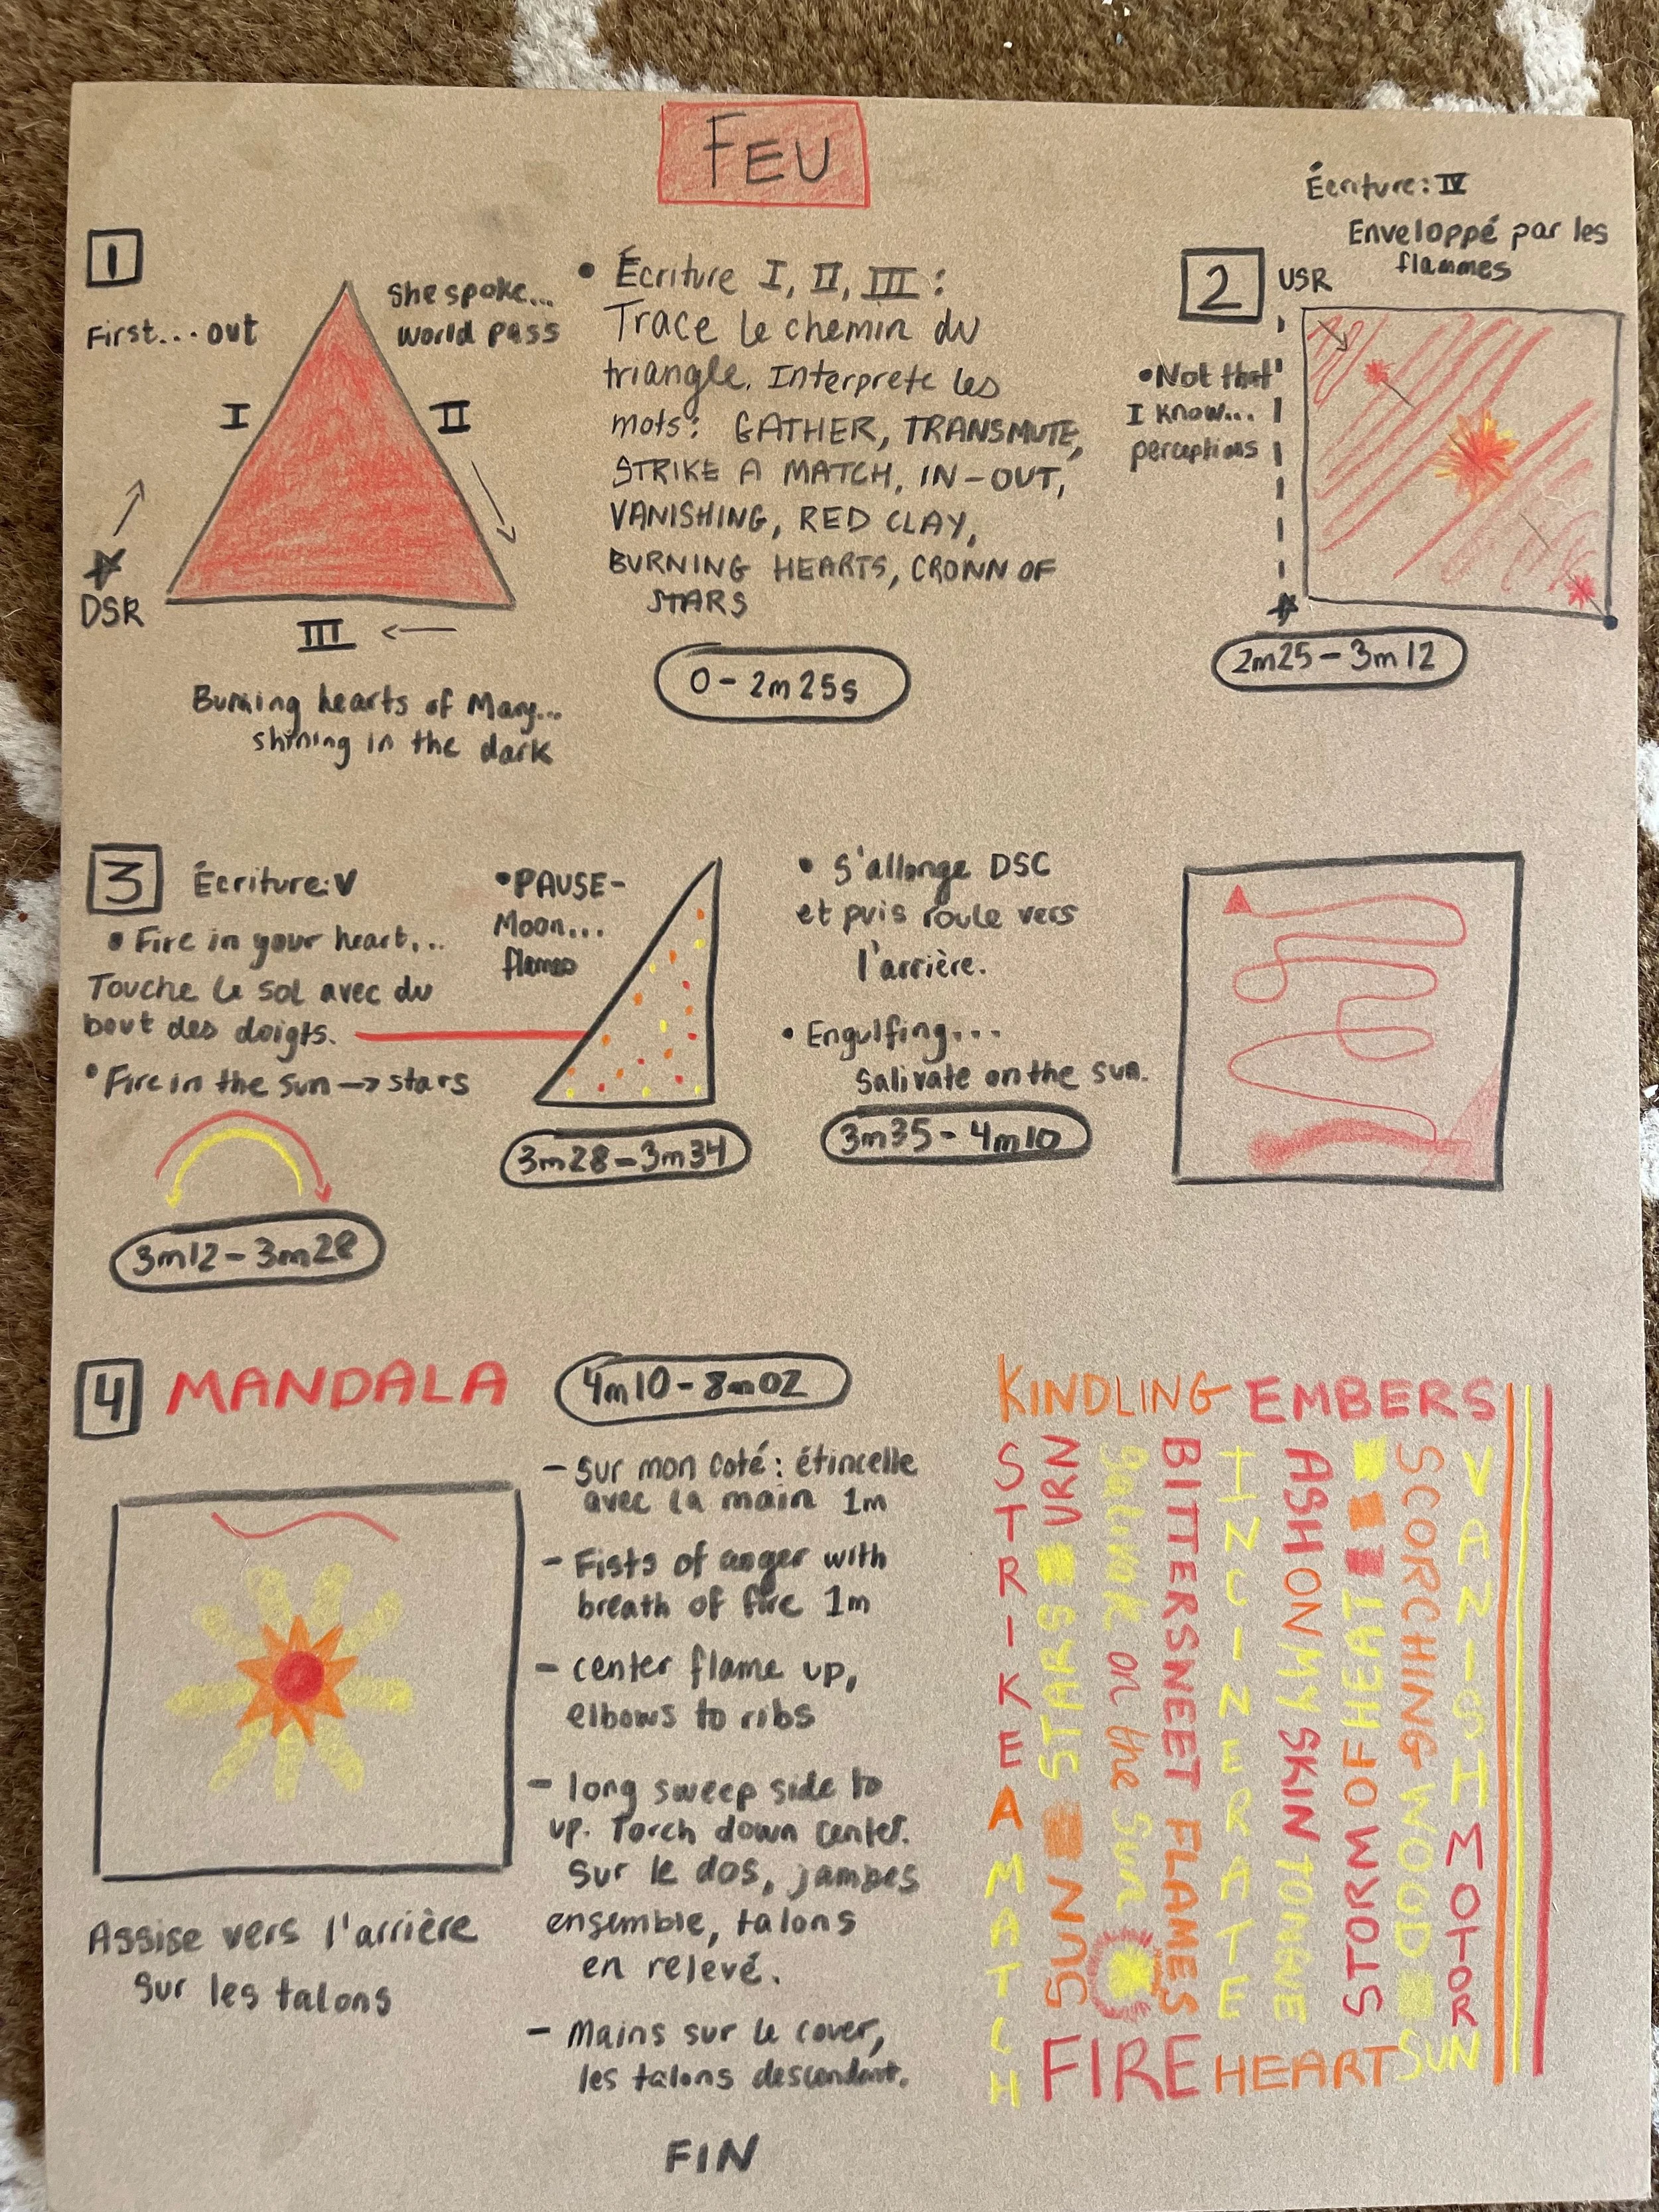 FEU
1
First...out
She spoke...
world pass
I
II
DSR
III
Burning hearts of Mary...
shining in the dark
• Écriture I, II, III:
Trace le chemin du
triangle. Interprete les
mots: GATHER, TRANSMUTE,
STRIKE A MATCH, IN-OUT,
VANISHING, RED CLAY,
BURNING HEARTS, CROWN OF
STARS
0 - 2m25s
Écriture: IV
Enveloppé par les
flammes
2
USR
• Not that
I know...
perceptions
2m25 - 3m12
3
Écriture: V
• Fire in your heart...
Touche le sol avec du
bout des doigts.
• Fire in the sun → stars
3m12 - 3m28
• PAUSE-
Moon...
flames
3m28 - 3m34
• S'allonge DSC
et puis roule vers
l'arrière.
• Engulfing...
Salivate on the sun.
3m35 - 4m10
4
MANDALA
4m10 - 8m02
Assise vers l'arrière
sur les talons
- Sur mon coté: étincelle
avec la main 1m
- Fists of anger with
breath of fire 1m
- center flame up,
elbows to ribs
- long sweep side to
up. Torch down center.
Sur le dos, jambes
ensemble, talons
en relevé.
- Mains sur le cover,
les talons descendent.
KINDLING EMBERS
STRIKE A MATCH
SUN STARS URN
Salivate on the Sun
BITTERSWEET FLAMES
INCINERATE
ASH ON MY SKIN TONGUE
STORM OF HEAT
SCORCHING WOOD
VANISH MOTOR
FIRE HEART SUN
FIN